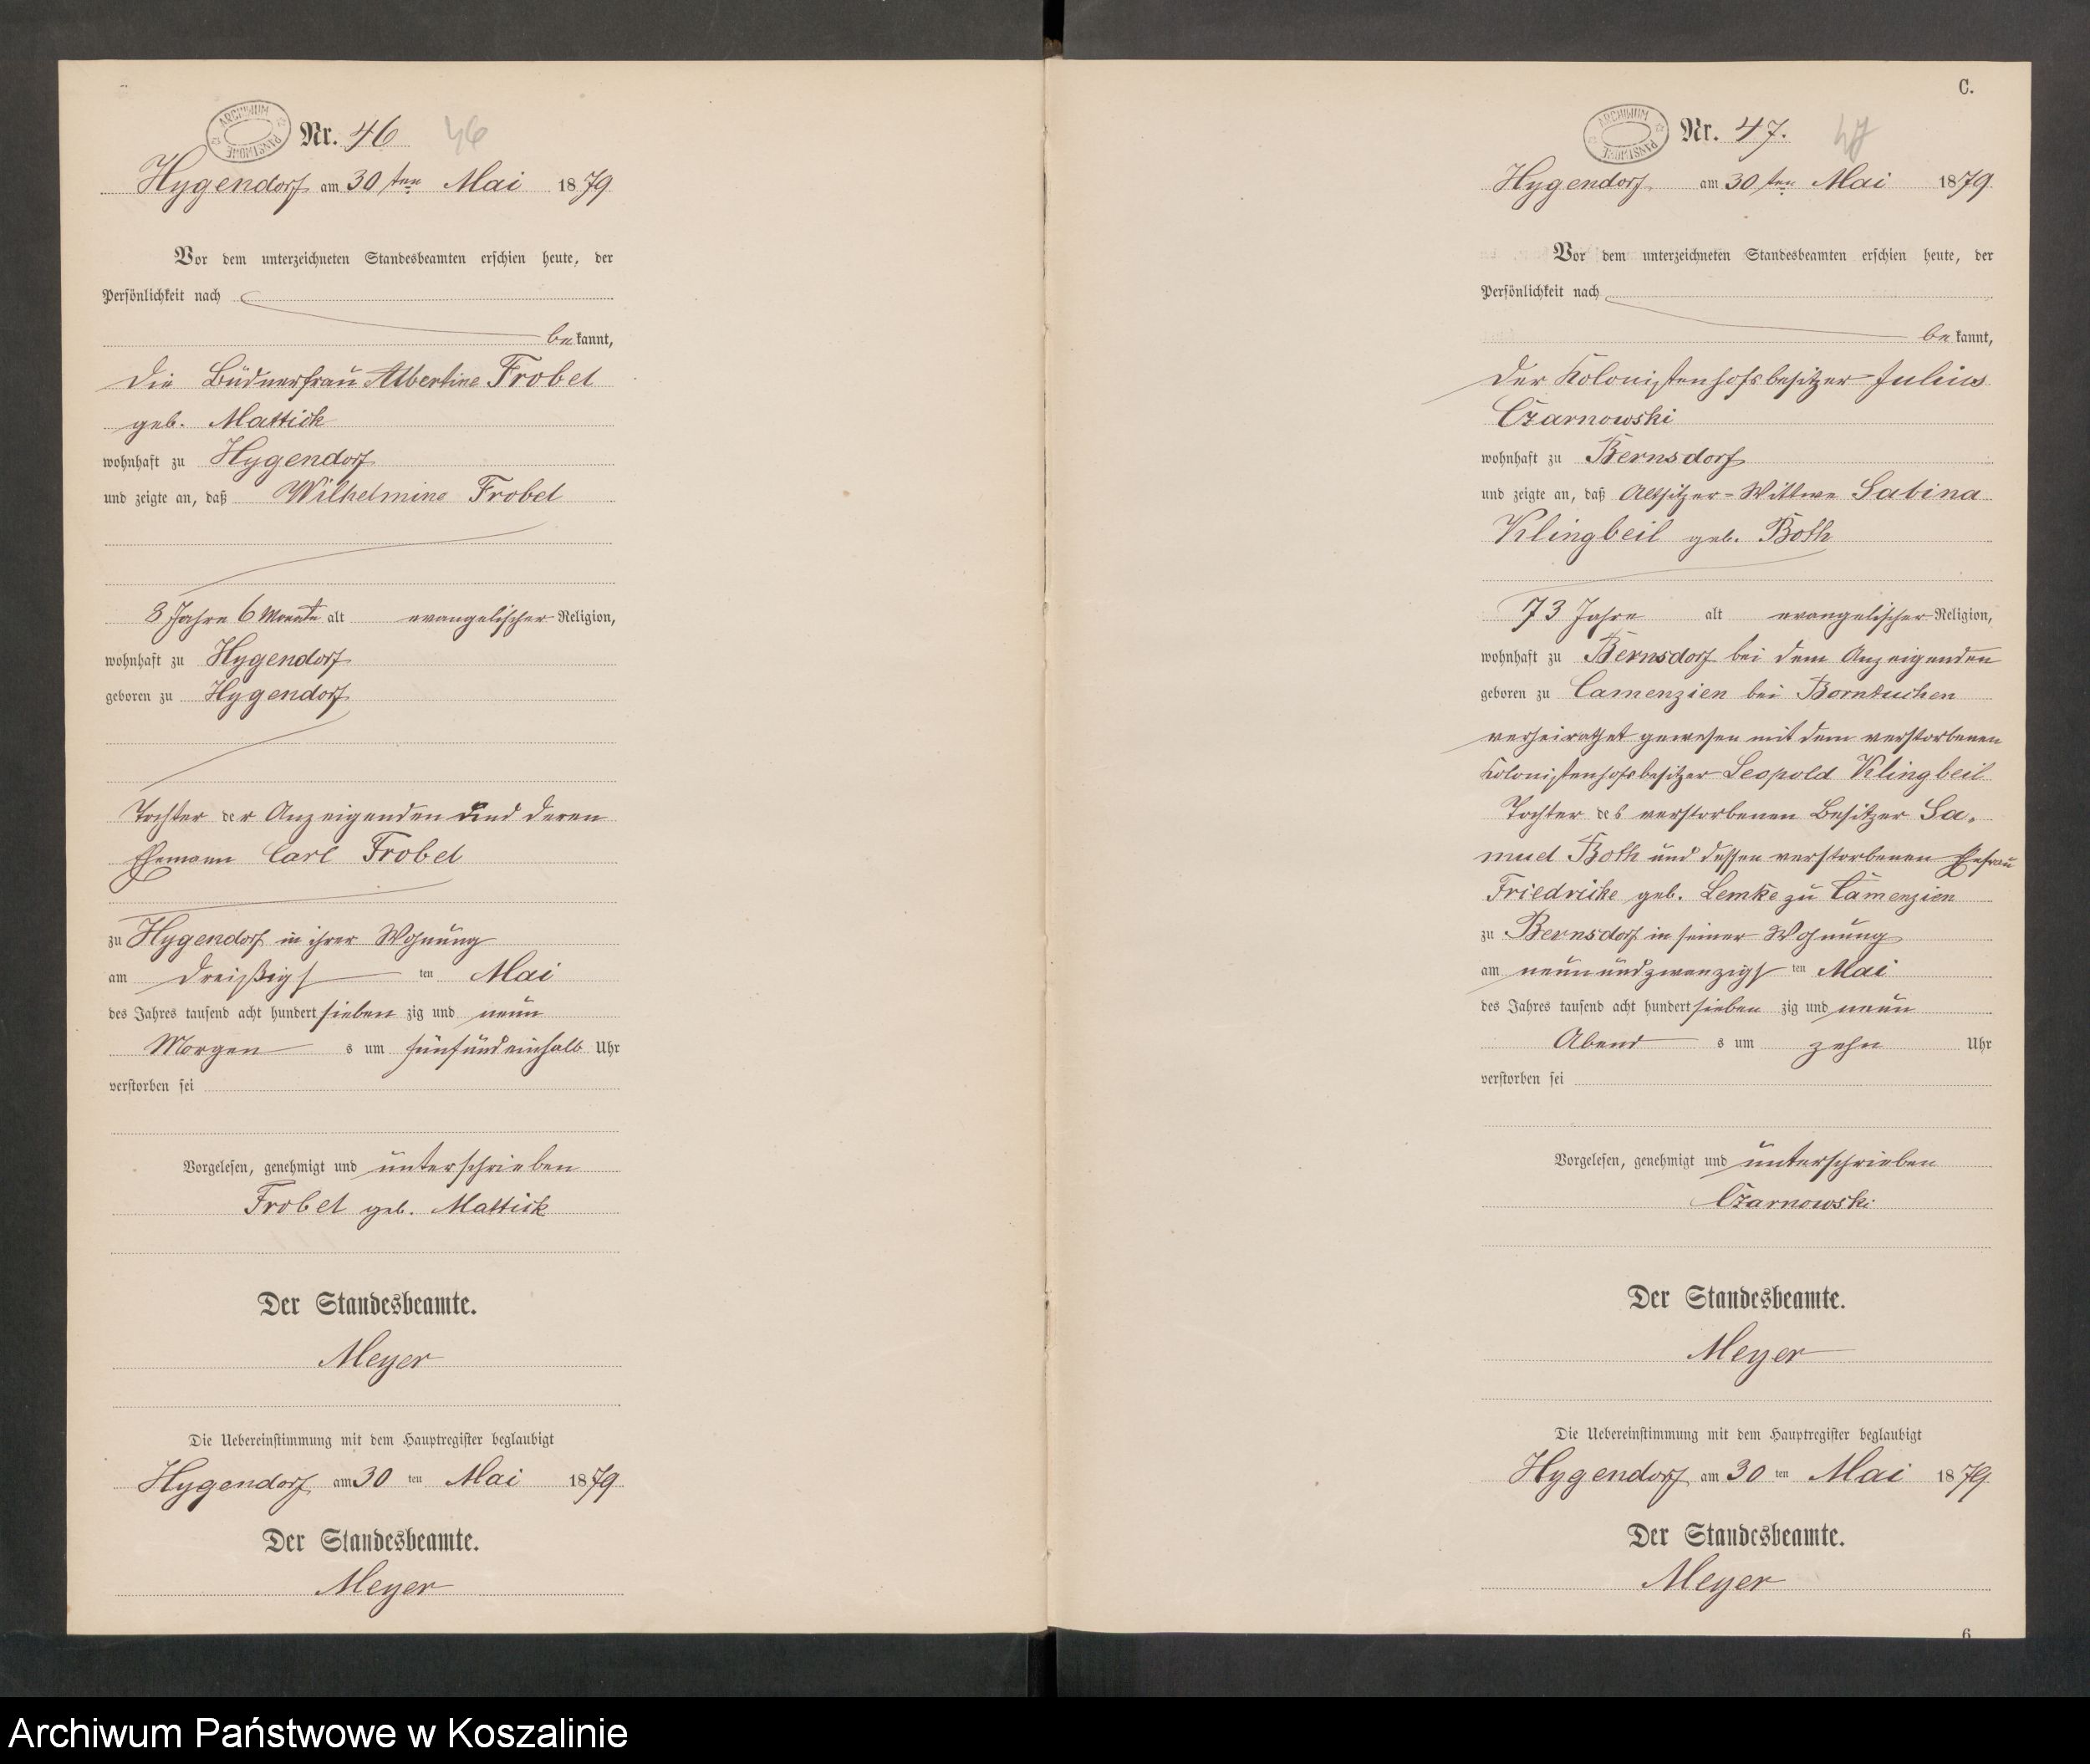 ARCHIWUM PAŃSTWOWE
Nr. 46 46
Hygendorf am 30 ten Mai 1879
Vor dem unterzeichneten Standesbeamten erschien heute, der
Persönlichkeit nach
bekannt,
die Büdnerfrau Albertine Frobel
geb. Mattick
wohnhaft zu Hygendorf
und zeigte an, daß Wilhelmine Frobel
8 Jahre 6 Monate alt evangelischer Religion,
wohnhaft zu Hygendorf
geboren zu Hygendorf
Tochter der Anzeigenden und deren
Ehemann Carl Frobel
zu Hygendorf in ihrer Wohnung
am dreißigsten Mai
des Jahres tausend acht hundert sieben zig und neun
Morgens um fünfundeinhalb Uhr
verstorben sei
Vorgelesen, genehmigt und unterschrieben
Frobel geb. Mattick
Der Standesbeamte.
Meyer
Die Uebereinstimmung mit dem Hauptregister beglaubigt
Hygendorf am 30 ten Mai 1879
Der Standesbeamte.
Meyer
C.
ARCHIWUM PAŃSTWOWE
Nr. 47. 47
Hygendorf am 30 ten Mai 1879.
Vor dem unterzeichneten Standesbeamten erschien heute, der
Persönlichkeit nach
bekannt,
der Kolonistenhofsbesitzer Julius
Czarnowski
wohnhaft zu Bernsdorf
und zeigte an, daß Altsitzer-Wittwe Sabina
Klingbeil geb. Both
73 Jahre alt evangelischer Religion,
wohnhaft zu Bernsdorf bei dem Anzeigenden
geboren zu Camenzien bei Borntuchen
verheirathet gewesen mit dem verstorbenen
Kolonistenhofsbesitzer Leopold Klingbeil
Tochter des verstorbenen Besitzer Sa-
muel Both und dessen verstorbenen Ehefrau
Friedricke geb. Lemke zu Camenzien
zu Bernsdorf in seiner Wohnung
am neunundzwanzigsten Mai
des Jahres tausend acht hundert sieben zig und neun
Abends um zehn Uhr
verstorben sei
Vorgelesen, genehmigt und unterschrieben
Czarnowski
Der Standesbeamte.
Meyer
Die Uebereinstimmung mit dem Hauptregister beglaubigt
Hygendorf am 30 ten Mai 1879
Der Standesbeamte.
Meyer
6
Archiwum Państwowe w Koszalinie